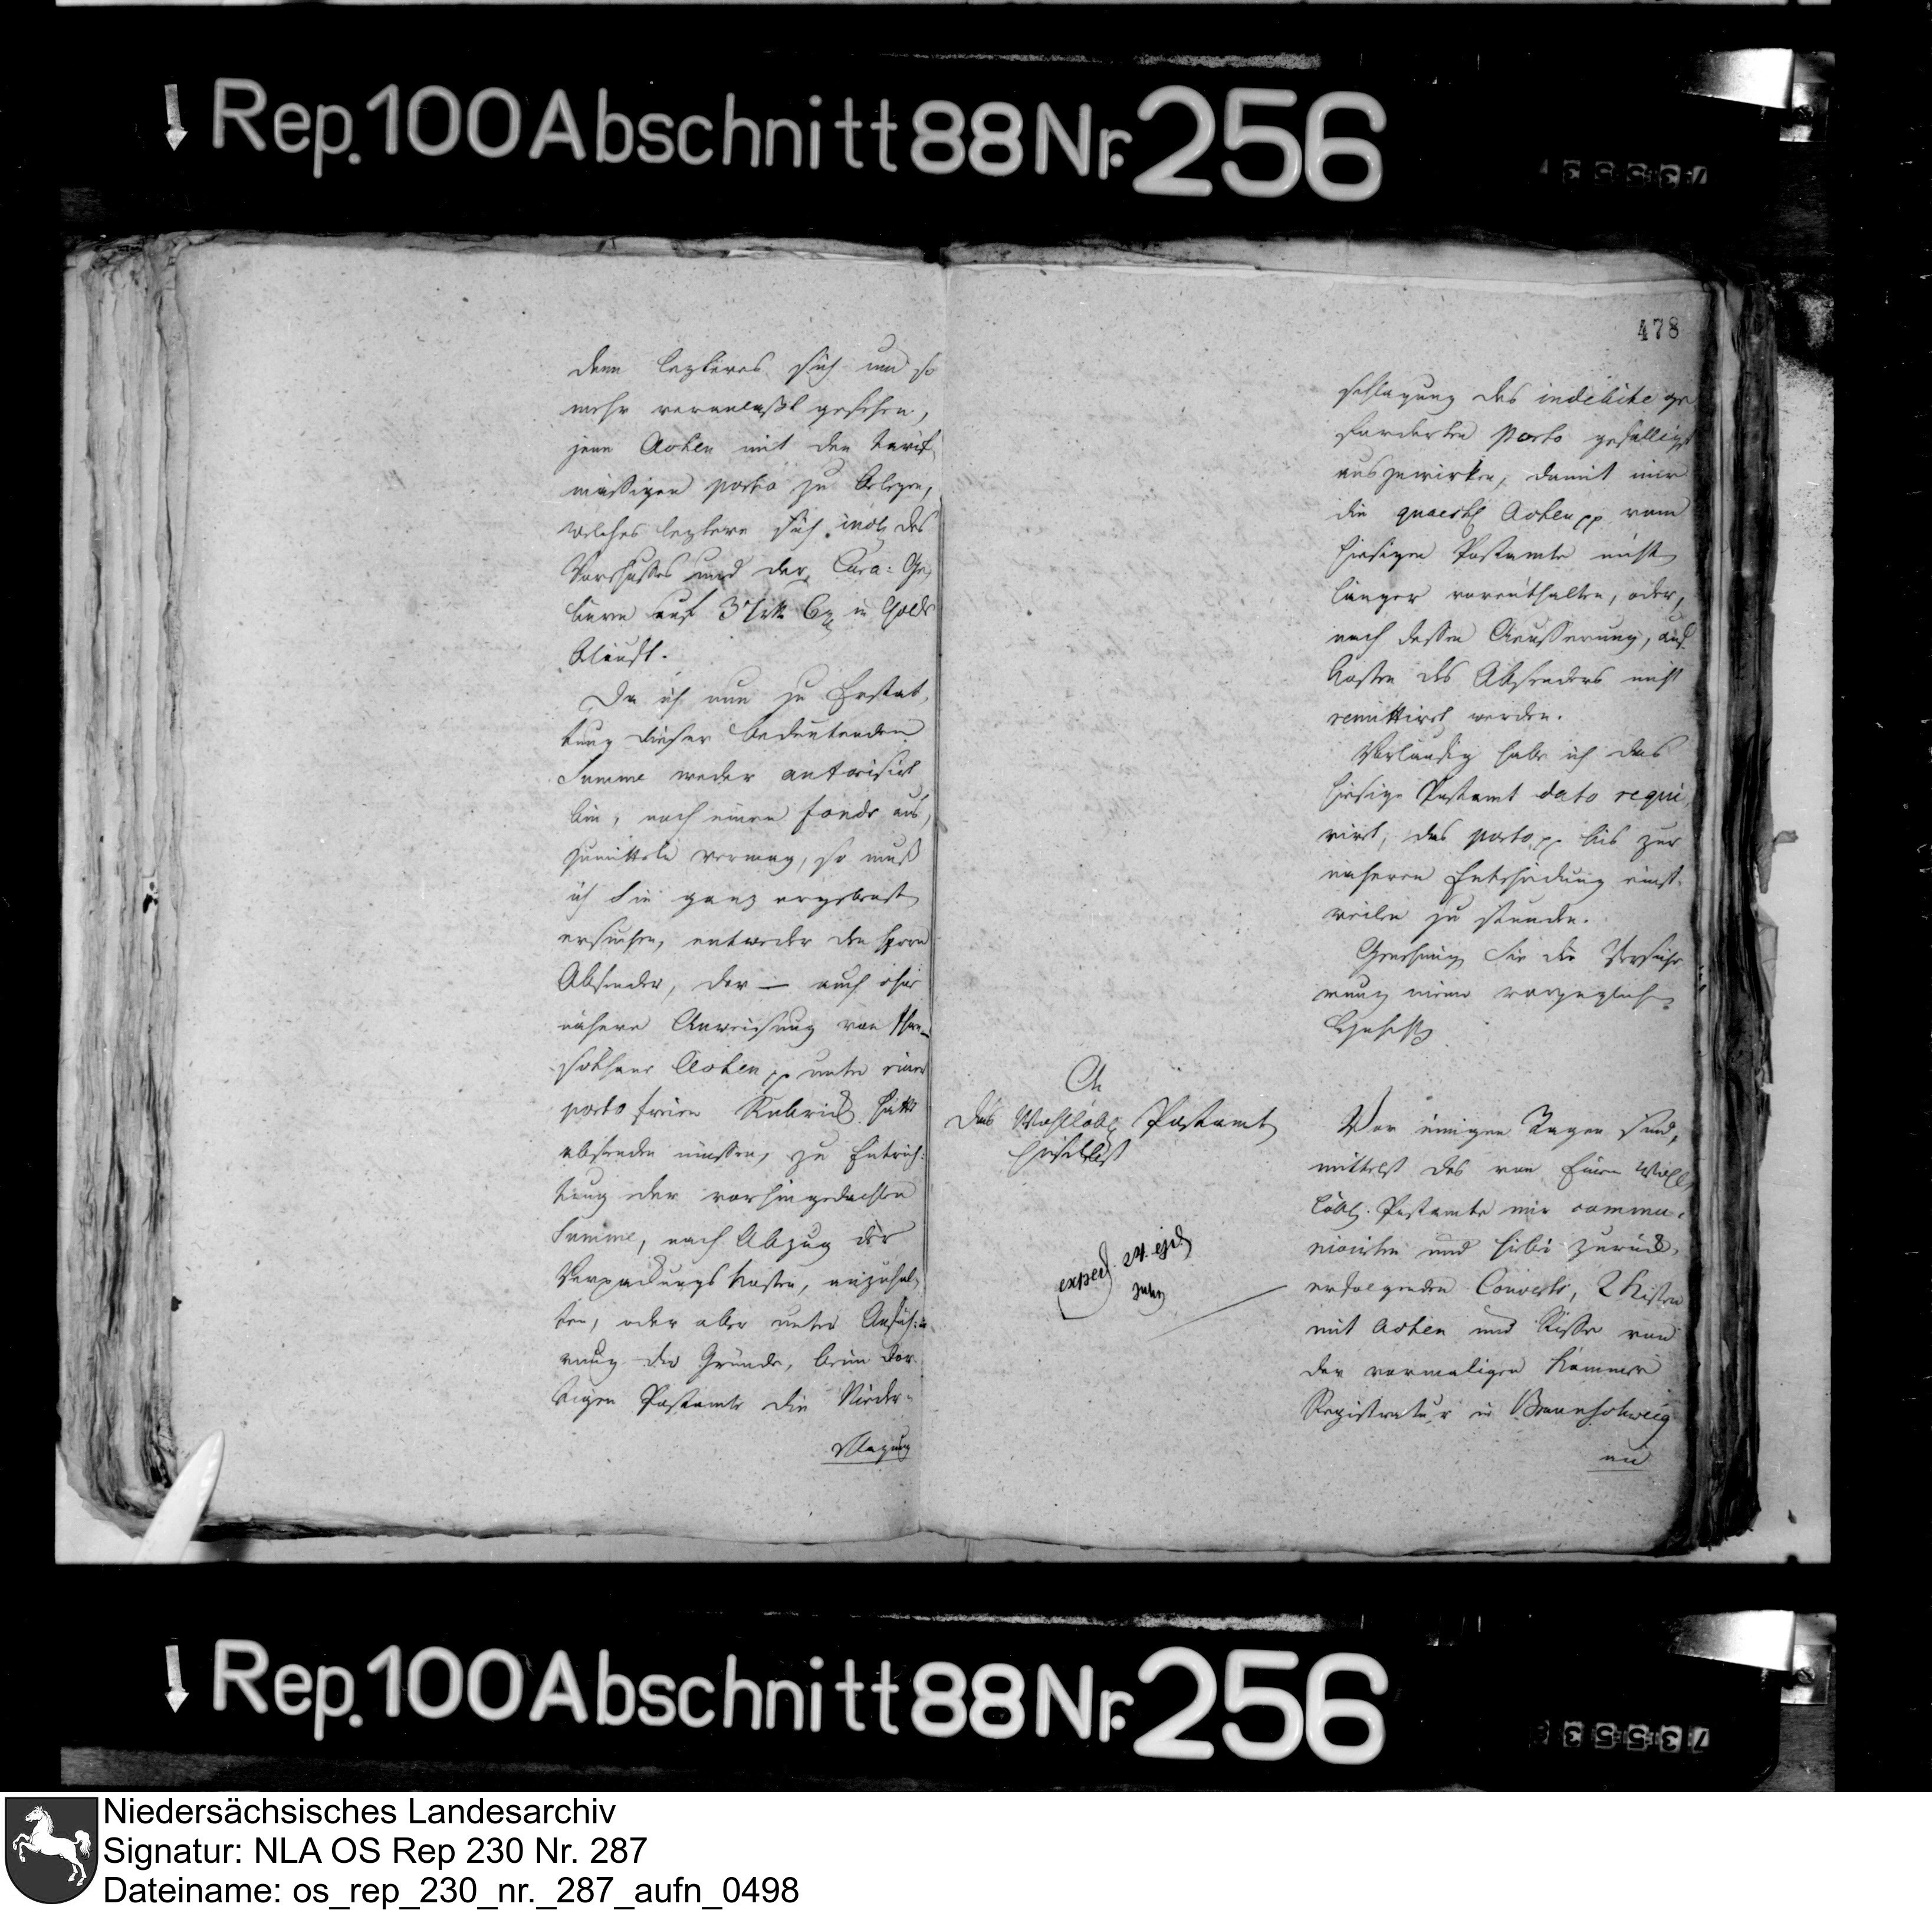 Rep. 100 Abschnitt 88 Nr. 256
denn lezteres sich um so
mehr veranlaßt gesehen,
jene Acten mit den tarif-
mäßigen porto zu belegen,
welches leztere sich incl. des
Vorschußes und der
auf in Golde
bläuft.
Da ich nun zu Erstat-
tung dieser bedeutenden
Summe weder autorisirt
bin, noch einen fonds aus-
zumitteln vermag, so muß
ich Sie ganz ergebenst
ersuchen, entweder den Herrn
Absender, der — auch ohne
nähere Anweisung von
Acten pp unter einer
porto freien Rubrick hätte
absenden müssen, zu Entrich-
tung der vorhingedachten
Summe, nach Abzug der
Verpackungs Kosten, anzuhal-
ten, oder aber unter Anfüh-
rung der Gründe, beim dor-
tigen Postamte die Nieder-
schlagung
478
schlagung des indebite ge-
forderten Porto gefälligst
auszuwirken, damit mir
die quaest. Acten pp vom
hiesigen Postamte nicht
länger vorenthalten, oder,
nach dessen Aeußerung, auf
Kosten des Absenders nicht
remittirt werden.
Vorläufig habe ich das
hiesige Postamt dato requi-
rirt, das porto pp bis zur
näheren Entscheidung einst-
weilen zu stunden.
Genehmigen Sie die Versiche-
rung meiner vorzüglichen
An
das Wohllöbl. Postamt
hieselbst
exped. 24. ejd.
Vor einigen Tagen sind,
mittelst des von Einem Wohl-
löbl. Postamte mir commu-
nicirten und hiebei zurück-
erfolgenden Couverts, 2 Kisten
mit Acten und Riße von
der vormaligen Kammer
Registratur in Braunschweig
an
Rep. 100 Abschnitt 88 Nr. 256
Niedersächsisches Landesarchiv
Signatur: NLA OS Rep 230 Nr. 287
Dateiname: os_rep_230_nr._287_aufn_0498